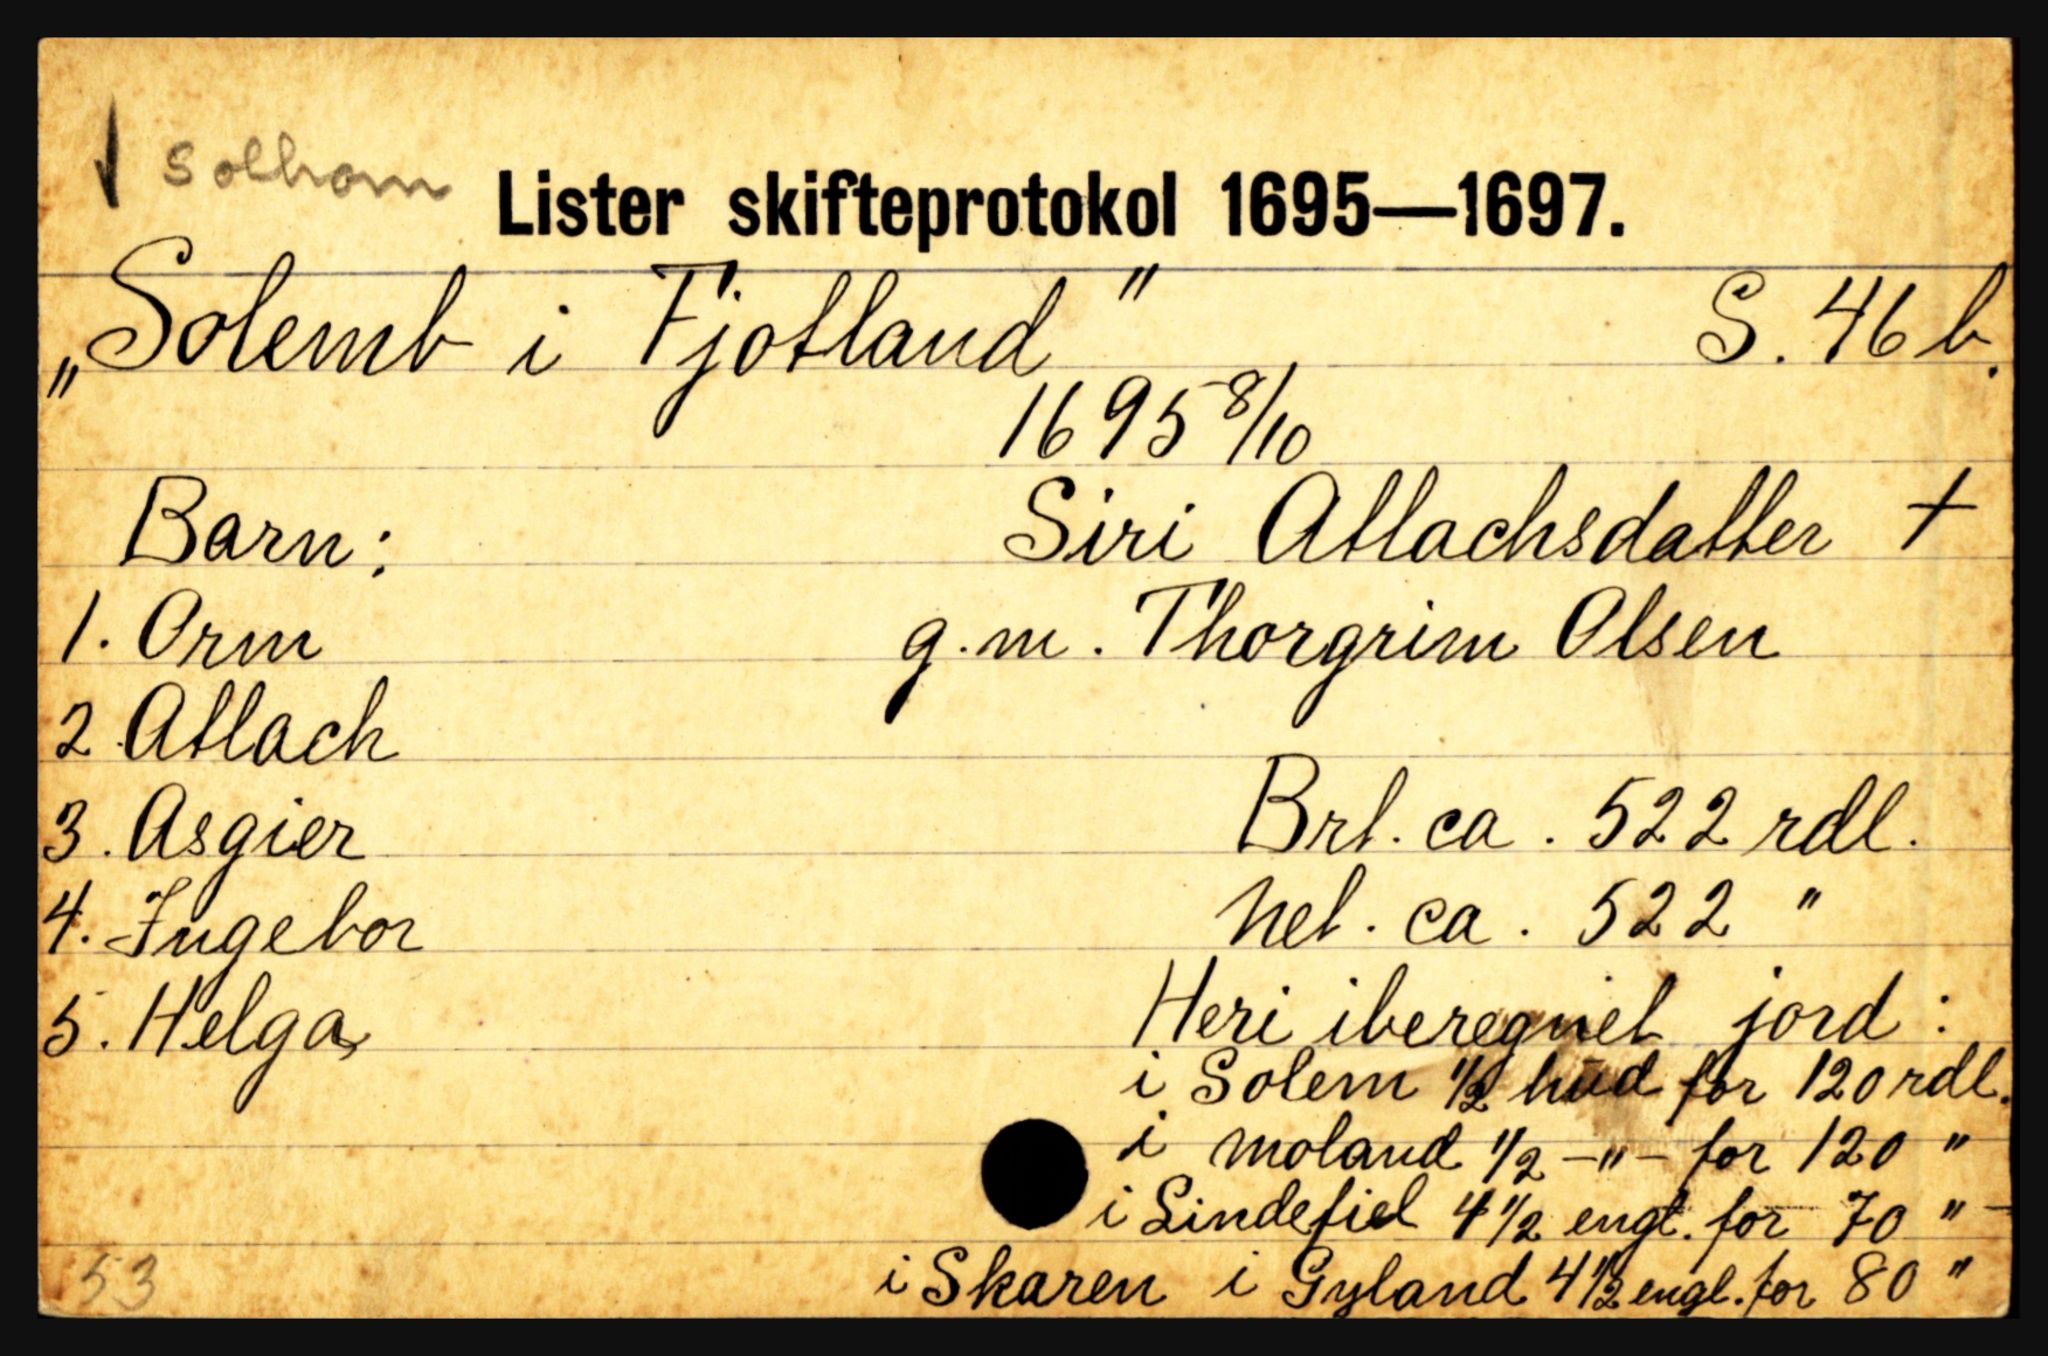 Solhom
Lister skifteprotokol 1695—1697.
„Solemb i Fjotland" S. 46 b.
1695 8/10
Barn: Siri Atlachsdatter +
1. Orm g.m. Thorgrim Olsen
2. Atlach
3. Asgier Brt. ca. 522 rdl.
4. Ingebor Net. ca. 522 "
5. Helga Heri iberegnet jord:
i Solem 1/2 hud for 120 rdl.
i Moland 1/2 -"- for 120 "
i Lindefiel 4 1/2 engl. for 70 "
i Skaren i Gyland 4 1/2 engl. for 80 "
53